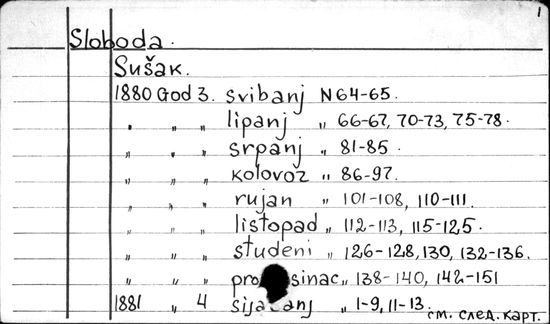 1
Sloboda.
Sušak.
1880 God 3. svibanj N 64-65.
" " " lipanj " 66-67, 70-73, 75-78.
" " " srpanj " 81-85.
" " " kolovoz " 86-97.
" " " rujan " 101-108, 110-111.
" " " listopad " 112-113, 115-125.
" " " studeni " 126-128, 130, 132-136.
" " " " 138-140, 142-151
1881 " 4 " 1-9, 11-13.
см. след. карт.